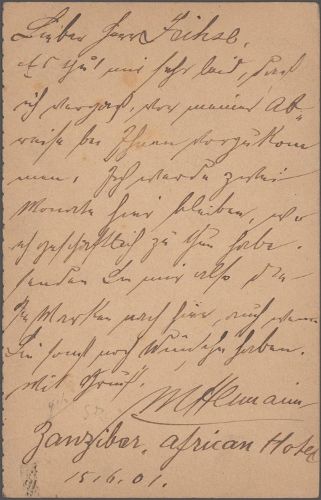 Lieber Herr Feihse,
es thut mir sehr leid, dass
ich vergaß, vor meiner Ab-
reise bei Ihnen vorzukom
men. Ich werde zwei
Monate hier bleiben, wo
ich geschäftlich zu thun habe.
senden Sie mir also die
Marken nach hier, auch wenn
Sie sonst noch Wünsche haben.
Mit Gruß
Zanzibar, african Hotel
15.6.01.